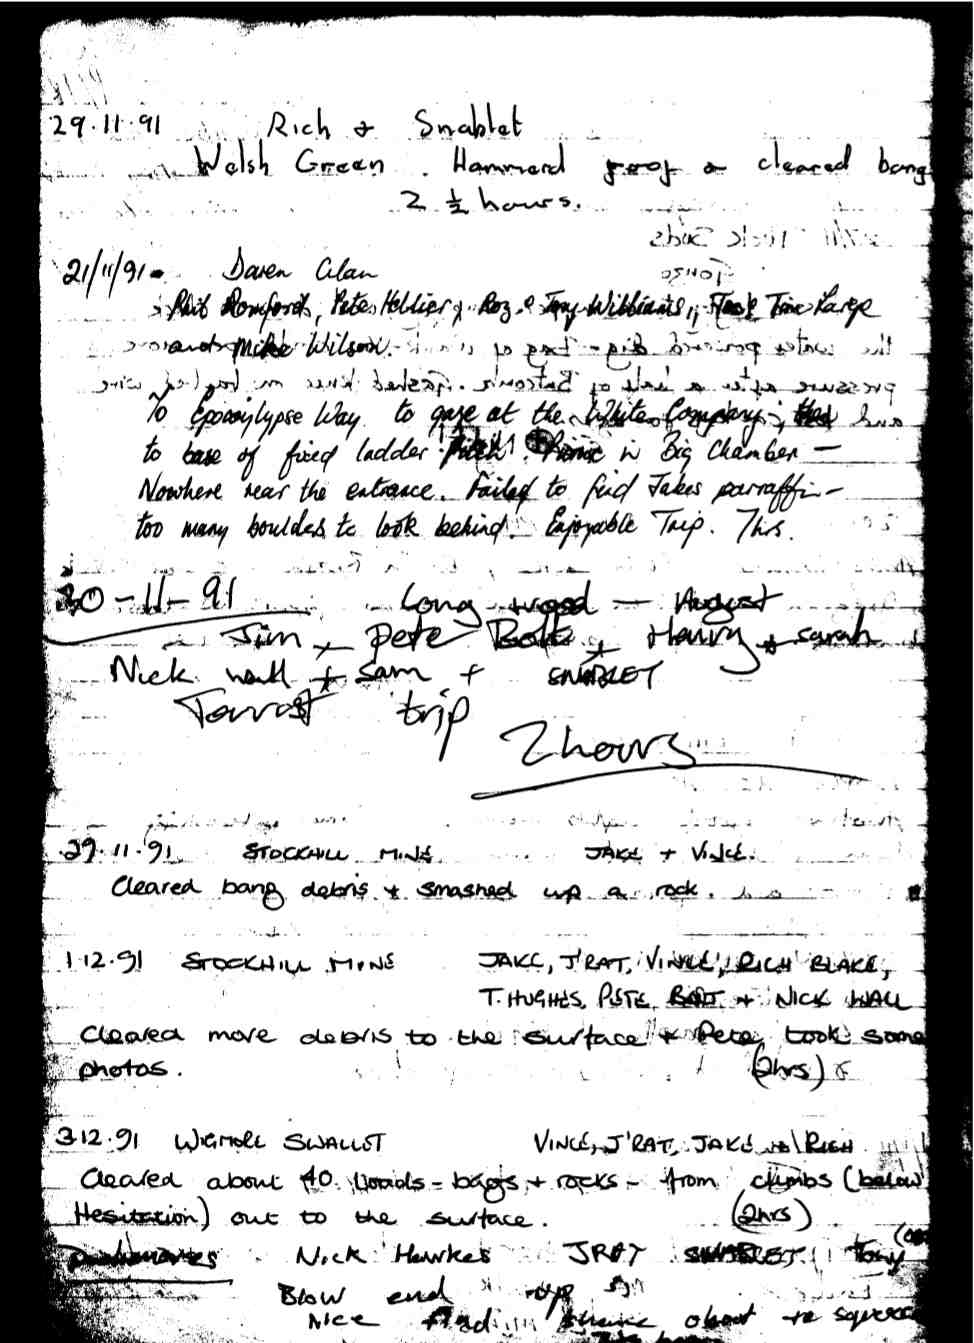 29.11.91 Rich + Snablet
Welsh Green. Hammered roof + cleared bang
2 ½ hours.
21/11/91. Daren Cilan
Phil Romford, Pete Hellier, Roz + Tony Williams, Tim Large
and Mike Wilson.
To Epocalypse Way to gaze at the White Company;
to base of fixed ladder Pitch. Picnic in Big Chamber –
Nowhere near the entrance. Failed to find Jakes parraffin –
too many boulders to look behind. Enjoyable Trip. 7hrs.
30-11-91 Long wood – August
Jim, Pete Bolt, Henry + sarah
Nick wall + Sam + SNABLET
Tourist trip
2hours
29.11.91 STOCKHILL MINE JAKE + VINCE.
Cleared bang debris + smashed up a rock.
1.12.91 STOCKHILL MINE JAKE, J'RAT, VINCE, RICH BLAKE,
T. HUGHES, PETE BOLT + NICK WALL
Cleared more debris to the surface + Pete took some
photos. (2hrs)
3.12.91 WIGMORE SWALLET VINCE, J'RAT, JAKE + RICH
Cleared about 40 loads – bags + rocks – from climbs (below
Hesitation) out to the surface. (2hrs)
Nick Hawkes JRAT SNABLET Tony
Blow end up
Nice about to squeeze